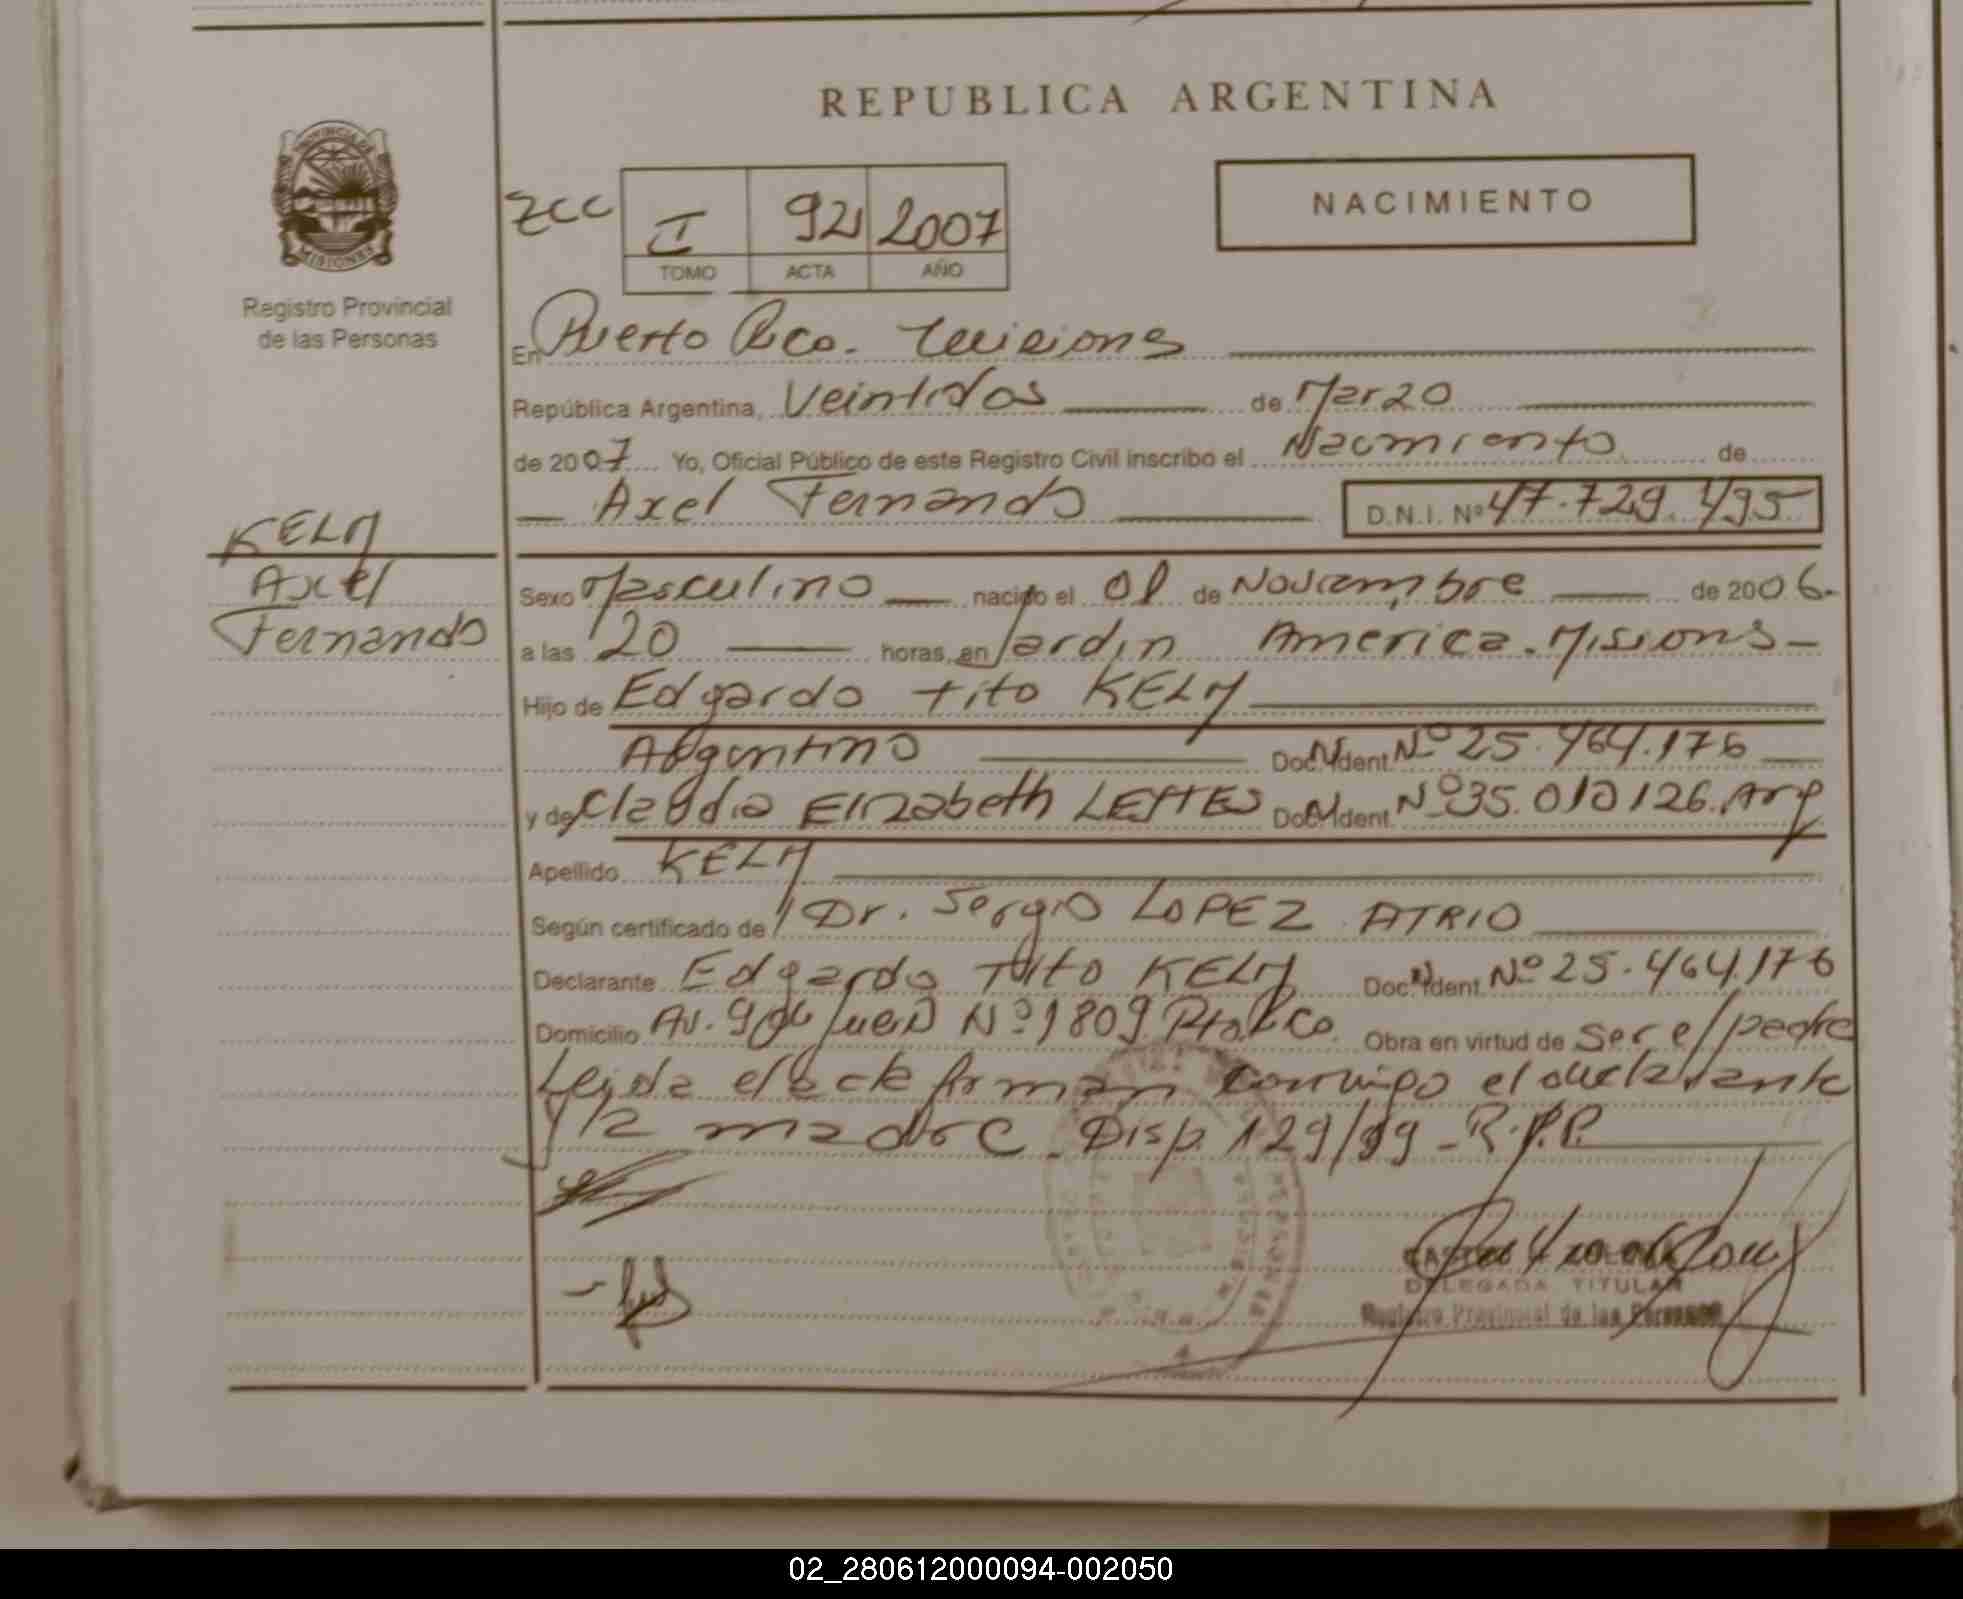 REPUBLICA ARGENTINA
PROVINCIA DE
MISIONES
Registro Provincial
de las Personas
NACIMIENTO
I 92 2007
TOMO ACTA AÑO
En Puerto Rico. Misiones
República Argentina, Veintidos de Marzo
de 2007 Yo, Oficial Público de este Registro Civil inscribo el Nacimiento de
Axel Fernando D.N.I. Nº 47.729.495
KELM
Axel
Fernando
Sexo Masculino nacido el 01 de Noviembre de 2006.
a las 20 horas, en Jardin America. Misiones
Hijo de Edgardo tito KELM
Argentino Doc. Ident. Nº 25.464.176
y de Claudia Elizabeth LEITES Doc. Ident. Nº 35.010126. Arg
Apellido KELM
Según certificado de Dr. Sergio LOPEZ ATRIO
Declarante Edgardo Tito KELM Doc. Ident. Nº 25.464.176
Domicilio Av. Nº 1809 Pto Rico. Obra en virtud de ser el padre
Leida el acta firman conmigo el declarante
y la madre. Disp. 129/99 - R.P.P.
DELEGADA TITULAR
Registro Provincial de las Personas
02_280612000094-002050